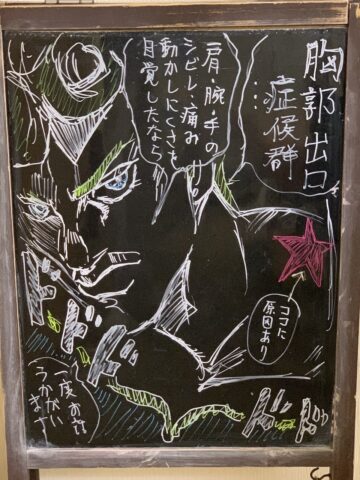 胸部出口
症候群
…
肩・腕・手の
シビレ、痛み
動かしにくさも
自覚したなら
ココに
原因あり
ドドドド
一度お話
うかがい
ます